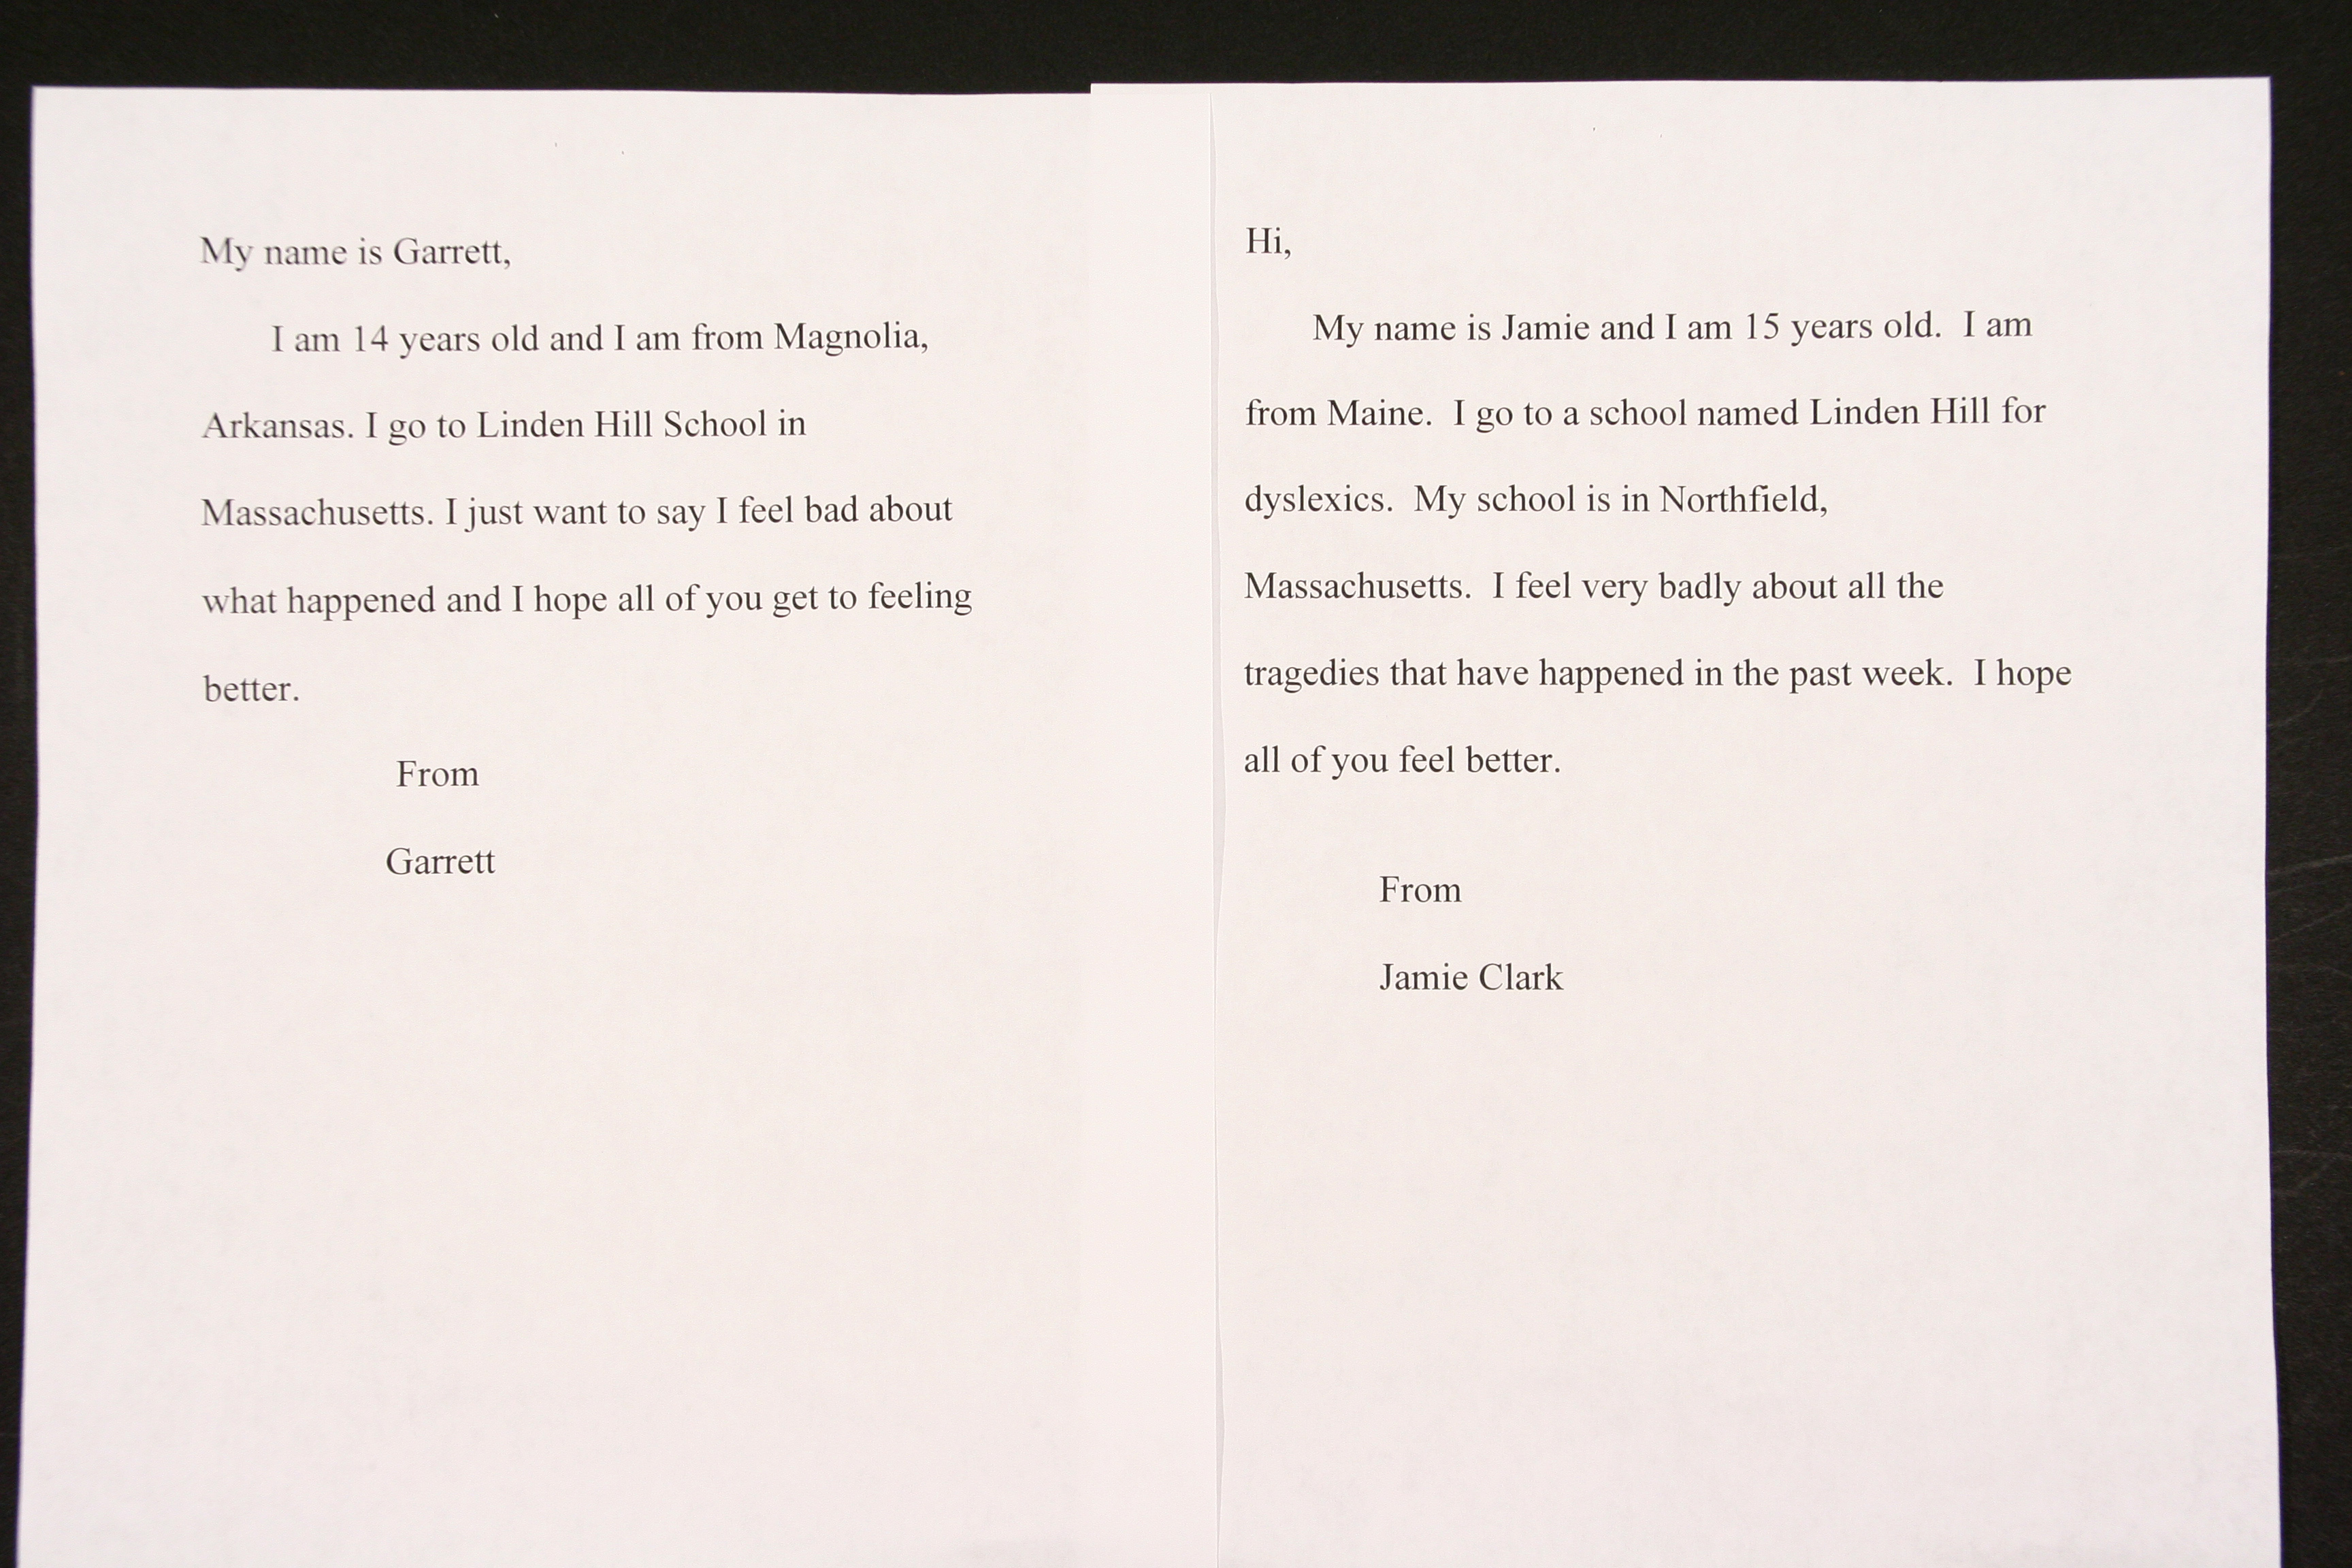 My name is Garrett,
I am 14 years old and I am from Magnolia,
Arkansas. I go to Linden Hill School in
Massachusetts. I just want to say I feel bad about
what happened and I hope all of you get to feeling
better.
From
Garrett
Hi,
My name is Jamie and I am 15 years old.  I am
from Maine.  I go to a school named Linden Hill for
dyslexics.  My school is in Northfield,
Massachusetts.  I feel very badly about all the
tragedies that have happened in the past week.  I hope
all of you feel better.
From
Jamie Clark